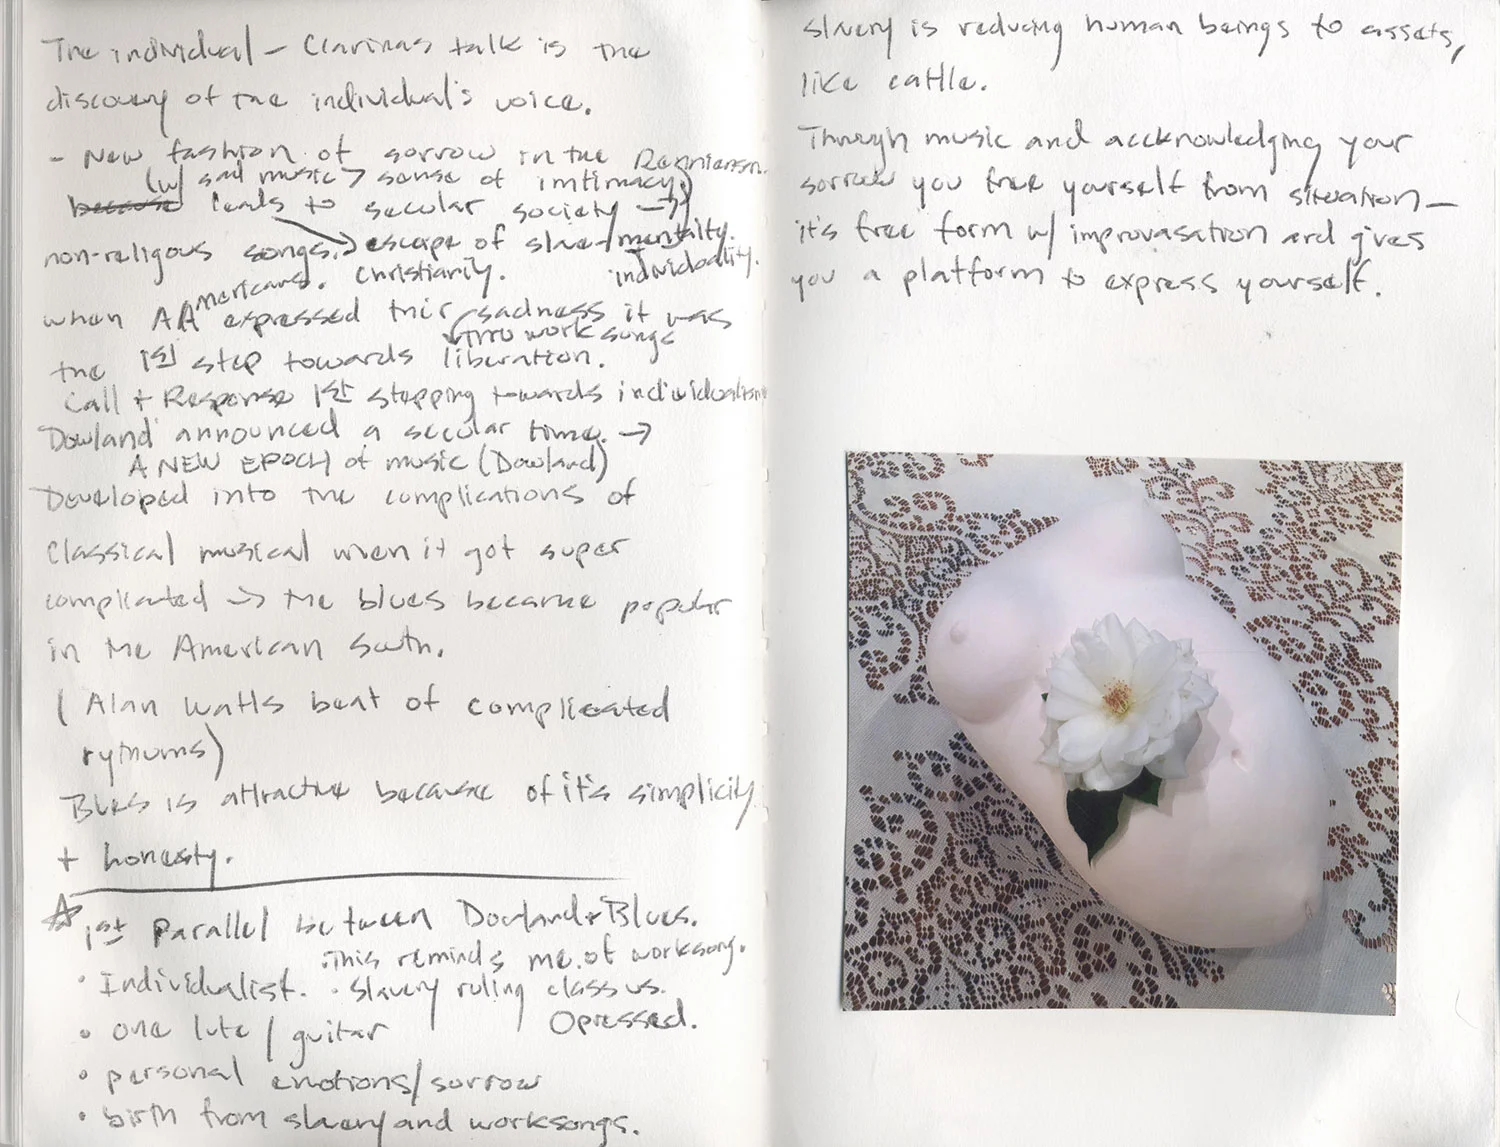 The individual – Clarinas talk is the
discovery of the individual's voice.
- New fashion of sorrow in the
(w/ sad music > sense of imtimacy.)
because leads to secular society →
non-religous songs. → escape of slave mentalty.
individuality.
Christianity.
when AAmericans. expressed thir sadness it was
thru work songs
the 1st step towards liberation.
Call + Response 1st stepping towards individualism
Dowland announced a secular time. →
A NEW EPOCH of music (Dowland)
Developed into the complications of
Classical musical when it got super
complicated → the blues became popular
in the American South.
( Alan Watts beat of complicated
rythums)
Blues is attractive because of it's simplicity
+ honesty.
1st Parallel between Dowland + Blues.
• This reminds me of worksong.
• Individualist. • Slavery ruling class vs.
Opressed.
• one lute / guitar
• personal emotions/sorrow
• birth from slavery and worksongs.
Slavery is reducing human beings to assets,
like cattle.
Through music and accknowledging your
sorrow you free yourself from situation –
it's free form w/ improvasation and gives
you a platform to express yourself.